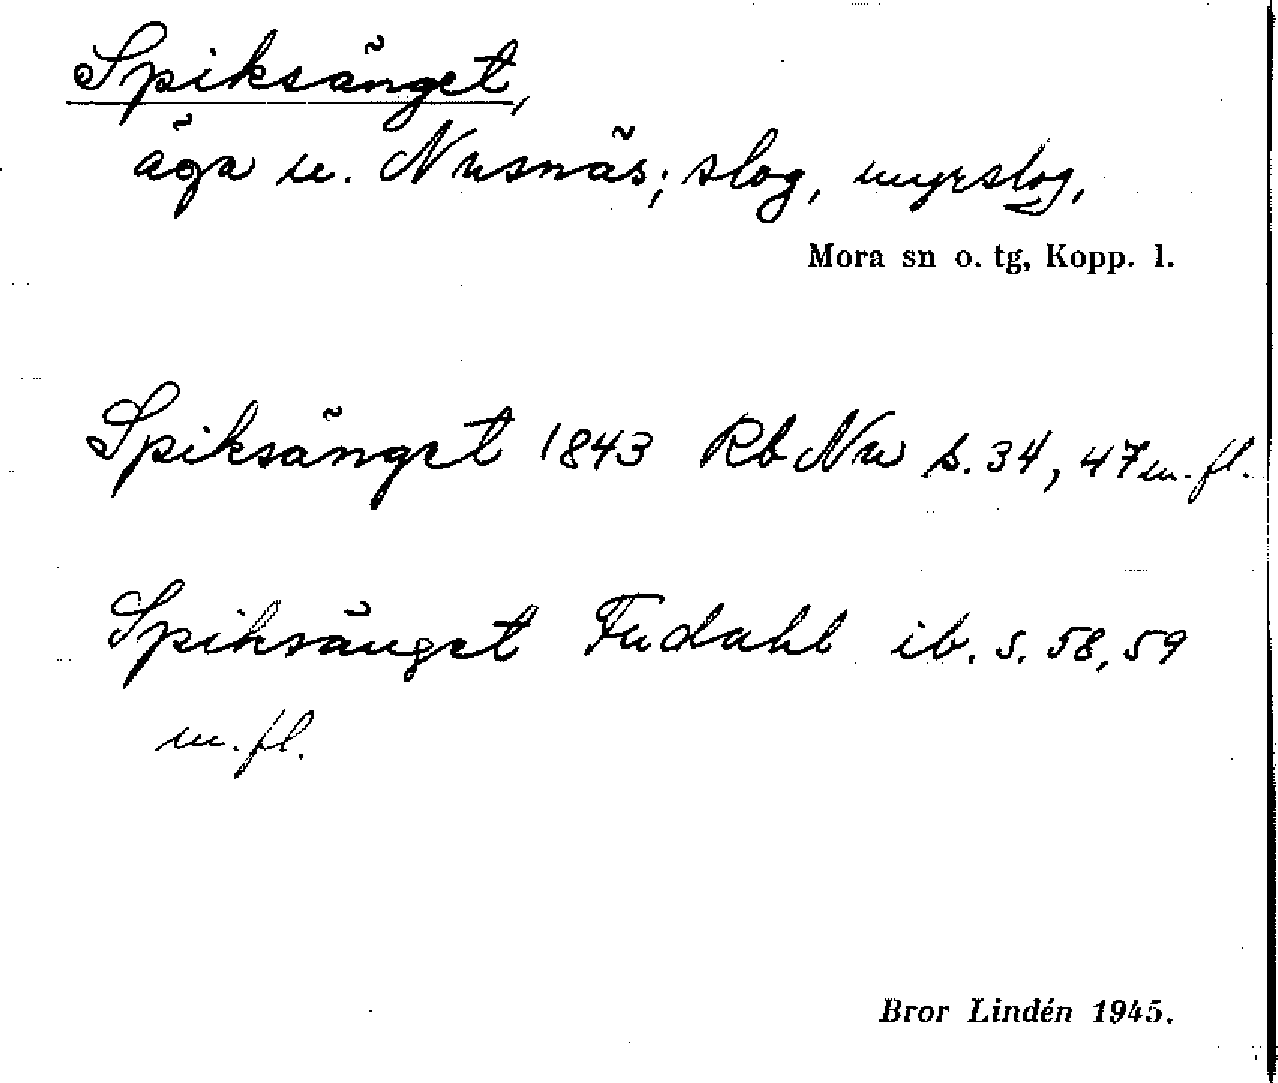 Spiksänget,
äga u. Nusnäs; slog, myrslog,
Mora sn o. tg, Kopp. l.
Spiksänget 1843 Rb Nu s. 34, 47 m. fl.
Spiksänget Fudahl ib. s. 58, 59
m. fl.
Bror Lindén 1945.